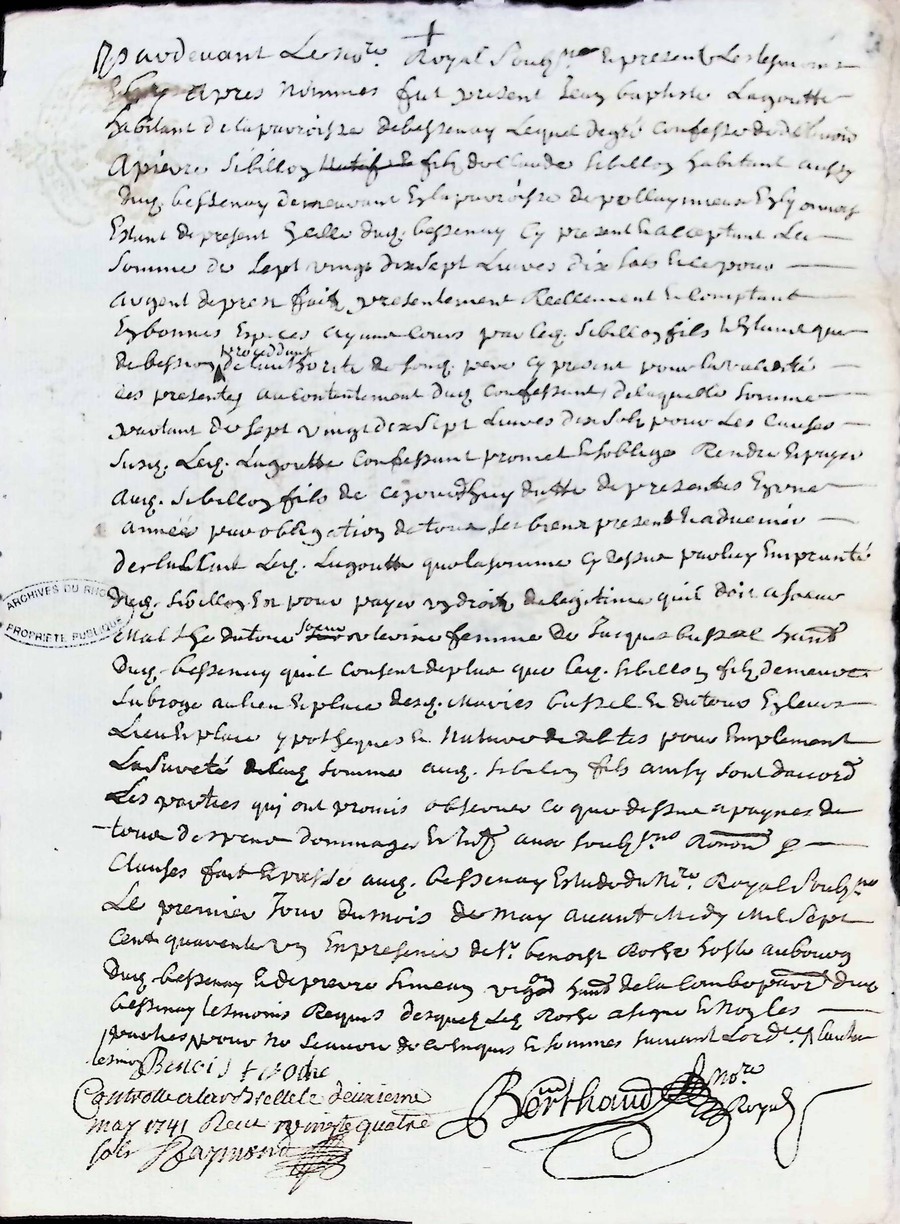 Pardevant Le No.re Royal Soubz.né Et present Les tesmoins
apres Nommés fut present Jean baptiste Lagoutte
habitant de la parroisse de bessenay Lequel de gré Confesse de debvoir
A pierre Sibillon fils de Claude Sibillon habitant aussy
Dud. bessenay demeurant En la parroisse de pollaymieux En Lyonnois
Estant de present En celle dud. bessenay Cy present Et acceptant La
Somme de Sept vingt dix Sept Livres dix Sols Et ce pour
argent de prest fait presentement Reellement Et Comptant
En bonnes Especes par led. Sibillon fils
procedant
de de l'authorité de Son d. pere Cy present pour la validité
des presentes au Contentement dud. Confessant de laquelle Somme
partant de Sept vingt dix Sept Livres dix Sols pour Les Causes
Susd. Led. Lagoutte Confessant promet Et Soblige Rendre Et payer
aud. Sibillon fils de ce jourdhuy datte des presentes En une
année par obligation de tous Ses biens presents Et advenir
Declarant Led. Lagoutte que la somme Cy dessus par luy Empruntée
Dud. Sibillon Est pour payer un droit de legitime quil doit a
soeur femme de Jacques bussel habt.
Dud. bessenay quil Consent de plus que Led. Sibillon fils demeure
Subrogé au lieu Et place desd. Mariés bussel Et En Leurs
Lieu Et place ypotheques Et Nature de debtes pour Emplement
La Sureté de lad. Somme aud. Sibillon fils ainsy Sont daccord
Les parties qui ont promis observer Ce que dessus a paynes de
tous despens dommages Et aux Soubz.nes
Clauses fait Et passé aud. bessenay Estude du No.re Royal Soubz.né
Le premier Jour du mois de may avant Midy Mil Sept
Cent quarente Un En presence de Sr. benoist Roche hoste au bourg
Dud. bessenay Et de pierre Simean vigon habt. de la Combe parr. dud.
bessenay tesmoins Requis desquels Led. Roche a signé Et Non les
parties pour ne scavoir de ce Enquis Et Sommés Suivant Lord.ce
tesmoin Benoist Roche
Controllé a larbrelle le deuxieme
may 1741 Receu vingte quatre
sols Raymond
Berthaud No.re Royal
ARCHIVES DU RHONE
PROPRIETE PUBLIQUE